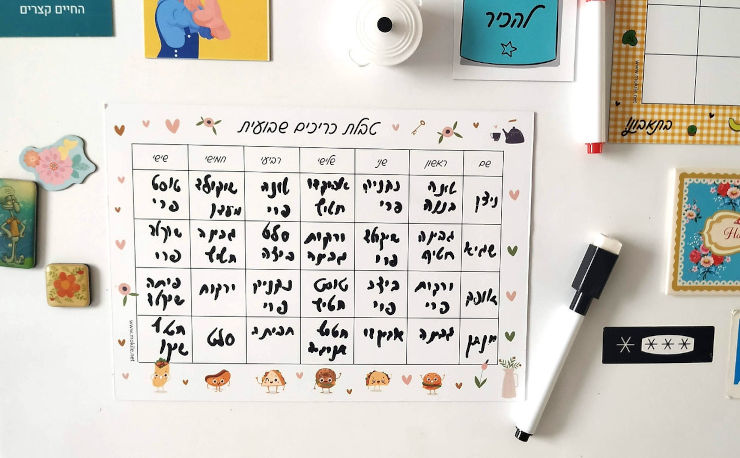 החיים קצרים
להכיר
www.mokale.net
בתאבון
טבלת כריכים שבועית
שם ראשון שני שלישי רביעי חמישי שישי
ניצן טונה נקניק אבוקדו טונה שוקולד טוסט
בננה פרי חטיף פרי מעדן פרי
שגיא גבינה שוקולד ירקות סלט גבינה שוקולד
חטיף פרי גבינה ביצה חטיף פרי
ירקות ביצה טוסט נקניק ירקות פיתה
פרי פרי חטיף פרי שוקולד
יונתן גבינה אבוקדו חטיף חביתה סלט חטיף
www.mokale.net